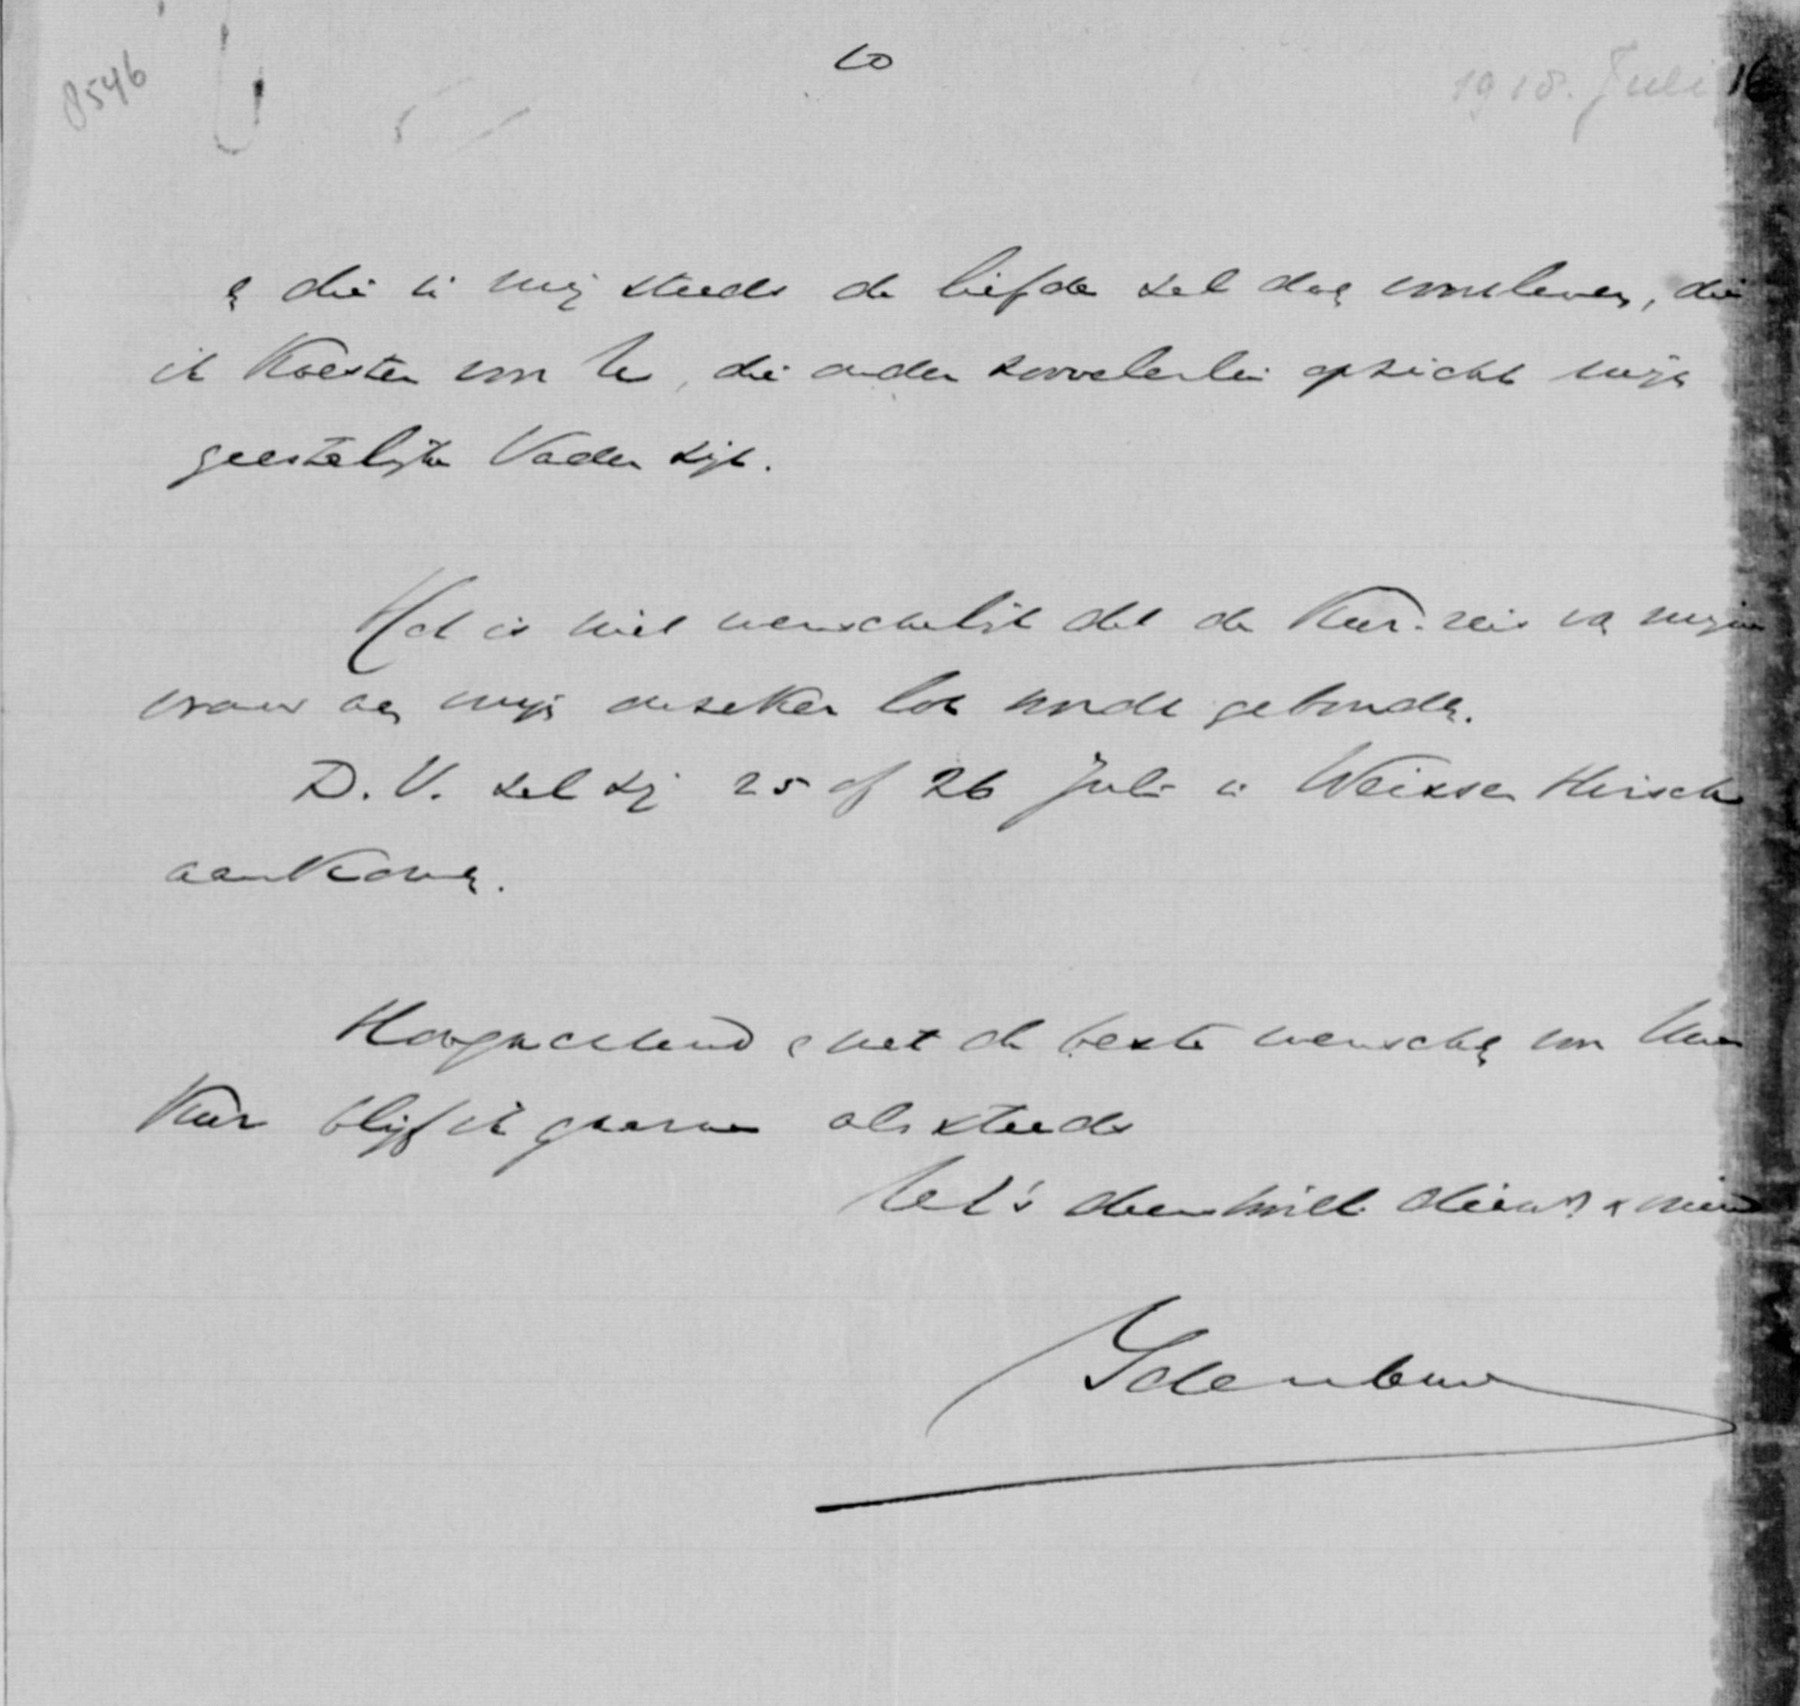 8546
10
1918. Juli 16
en die in mij steeds de liefde zal doen voortleven, die
ik koester voor U, die onder zoovelerlei opzicht mijn
geestelijke Vader zijt.
Het is niet wenschelijk dat de Kur-reis van mijne
vrouw aan mijn onzeker lot wordt gebonden.
D.V. zal zij 25 of 26 Juli in Weisser Hirsch
aankomen.
Hoogachtend en met de beste wenschen voor Uwe
Kur blijf ik gaarne als steeds
Uw dienstw. en vriend
Idenburg